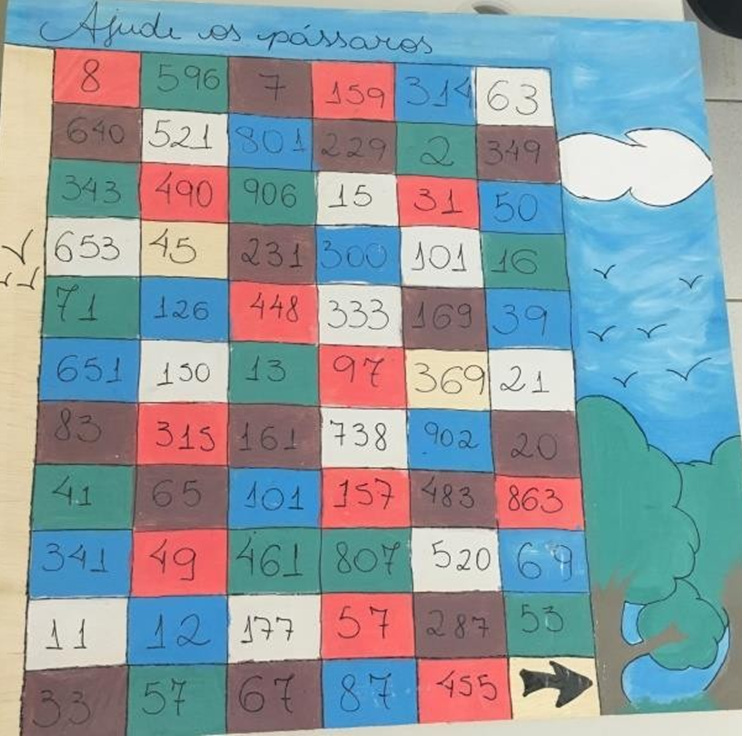 Ajude os pássaros
8 596 7 159 314 63
640 521 801 229 2 349
343 490 906 15 31 50
653 45 231 300 101 16
71 126 448 333 169 39
651 150 13 97 369 21
83 315 161 738 902 20
41 65 101 157 483 863
341 49 461 807 520 69
11 12 177 57 287 53
33 57 67 87 455